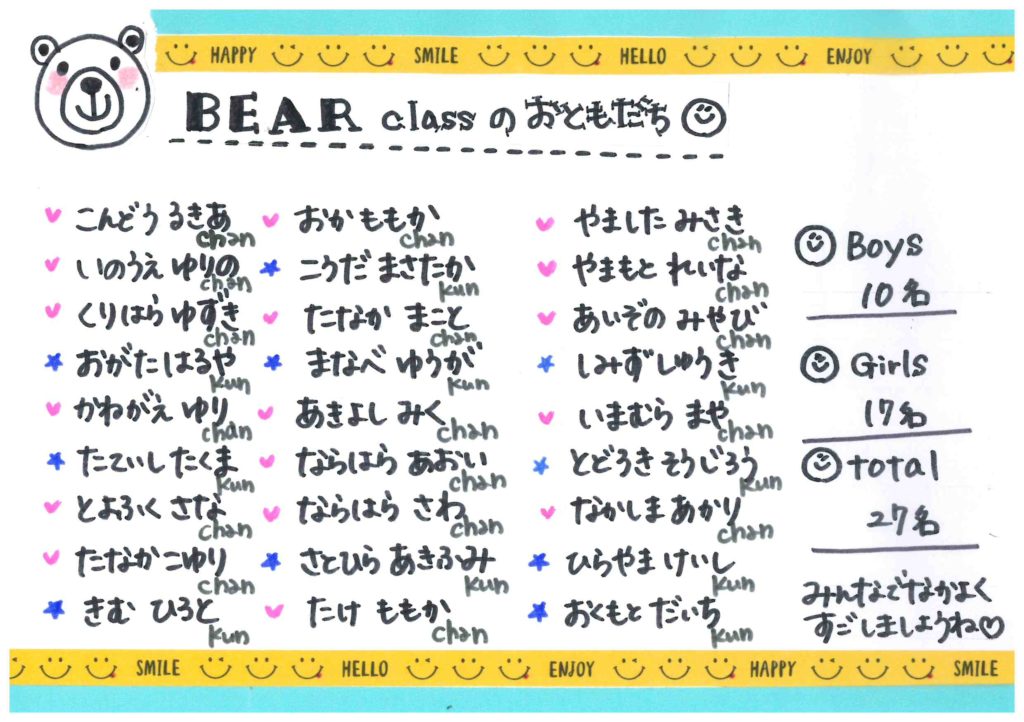 HAPPY SMILE HELLO ENJOY
BEAR classのおともだち
こんどう るきあ chan
いのうえ ゆりの chan
くりはら ゆずき chan
おがた はるや kun
かねがえ ゆり chan
たていし たくま kun
とよふく さな chan
たなか こゆり chan
きむ ひろと kun
おか ももか chan
こうだ まさたか kun
たなか まこと chan
まなべ ゆうが kun
あきよし みく chan
ならはら あおい chan
ならはら さわ chan
さとひら あきふみ kun
たけ ももか chan
やました みさき chan
やまもと れいな chan
あいぞの みやび chan
しみず しゅうき kun
いまむら まや chan
とどろき そうじろう kun
なかしま あかり chan
ひらやま けいし kun
おくもと だいち kun
Boys
10名
Girls
17名
total
27名
みんなでなかよく
すごしましょうね
SMILE HELLO ENJOY HAPPY SMILE